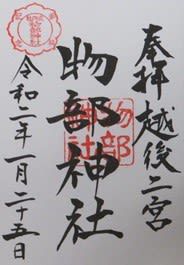 奉拝
越後二宮
物部神社
物部
神社
令和二年一月二十五日